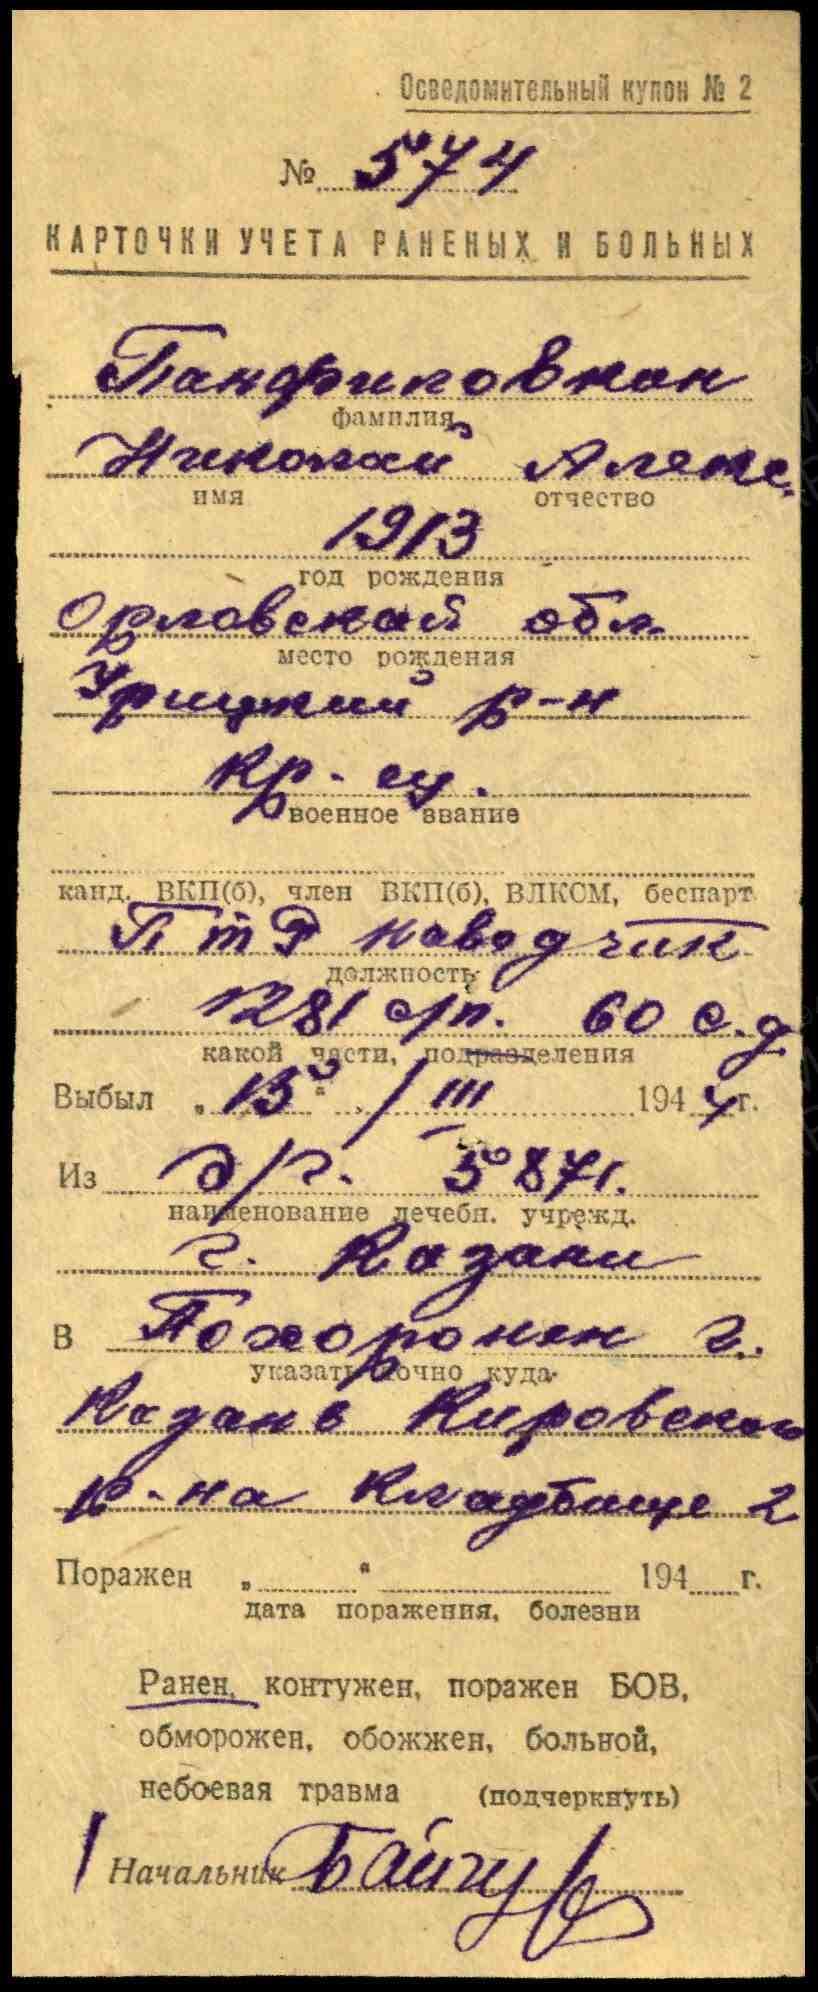 Осведомительный купон № 2
№ 574
КАРТОЧКИ УЧЕТА РАНЕНЫХ И БОЛЬНЫХ
Панфиловкин
фамилия
Николай Алекс.
имя отчество
1913
год рождения
Орловской обл.
место рождения
Урицкий р-н
кр-ец.
военное звание
канд. ВКП(б), член ВКП(б), ВЛКСМ, беспарт.
ПТР наводчик
должность
1281 с/п. 60 с.д.
какой части, подразделения
Выбыл „13“ / III 1944 г.
Из э/г. 5871.
наименование лечебн. учрежд.
г. Казани
В Похоронен г.
указать точно куда
Казань Кировского
р-на кладбище 2
Поражен „ “ 194 г.
дата поражения, болезни
Ранен, контужен, поражен БОВ,
обморожен, обожжен, больной,
небоевая травма (подчеркнуть)
Начальник